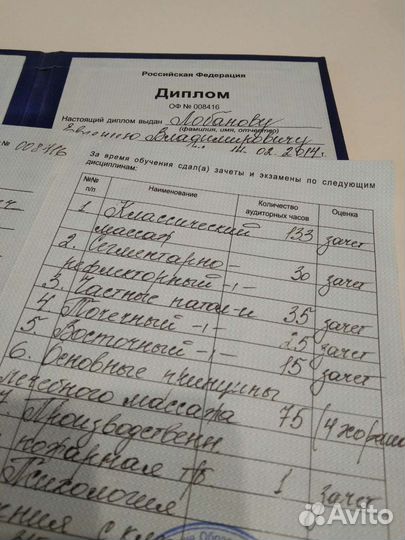 Российская Федерация
Диплом
ОФ № 008416
Настоящий диплом выдан Лобанову
(фамилия, имя, отчество)
Владимировичу
02.2014г.
№ 008416
За время обучения сдал(а) зачеты и экзамены по следующим
дисциплинам:
№№ п/п Наименование Количество аудиторных часов Оценка
1 Классический
массаж 133 зачет
2. Сегментарно-
рефлекторный -"- 30 зачет
3. Частные патол-и 35 зачет
4 Точечный -"- 25 зачет
5 Восточный -"- 15 зачет
6. Основные принципы
лечебного массажа 75 (4 хорошо
7. Производственн.
пожарная тб 1 зачет
Психология
Avito